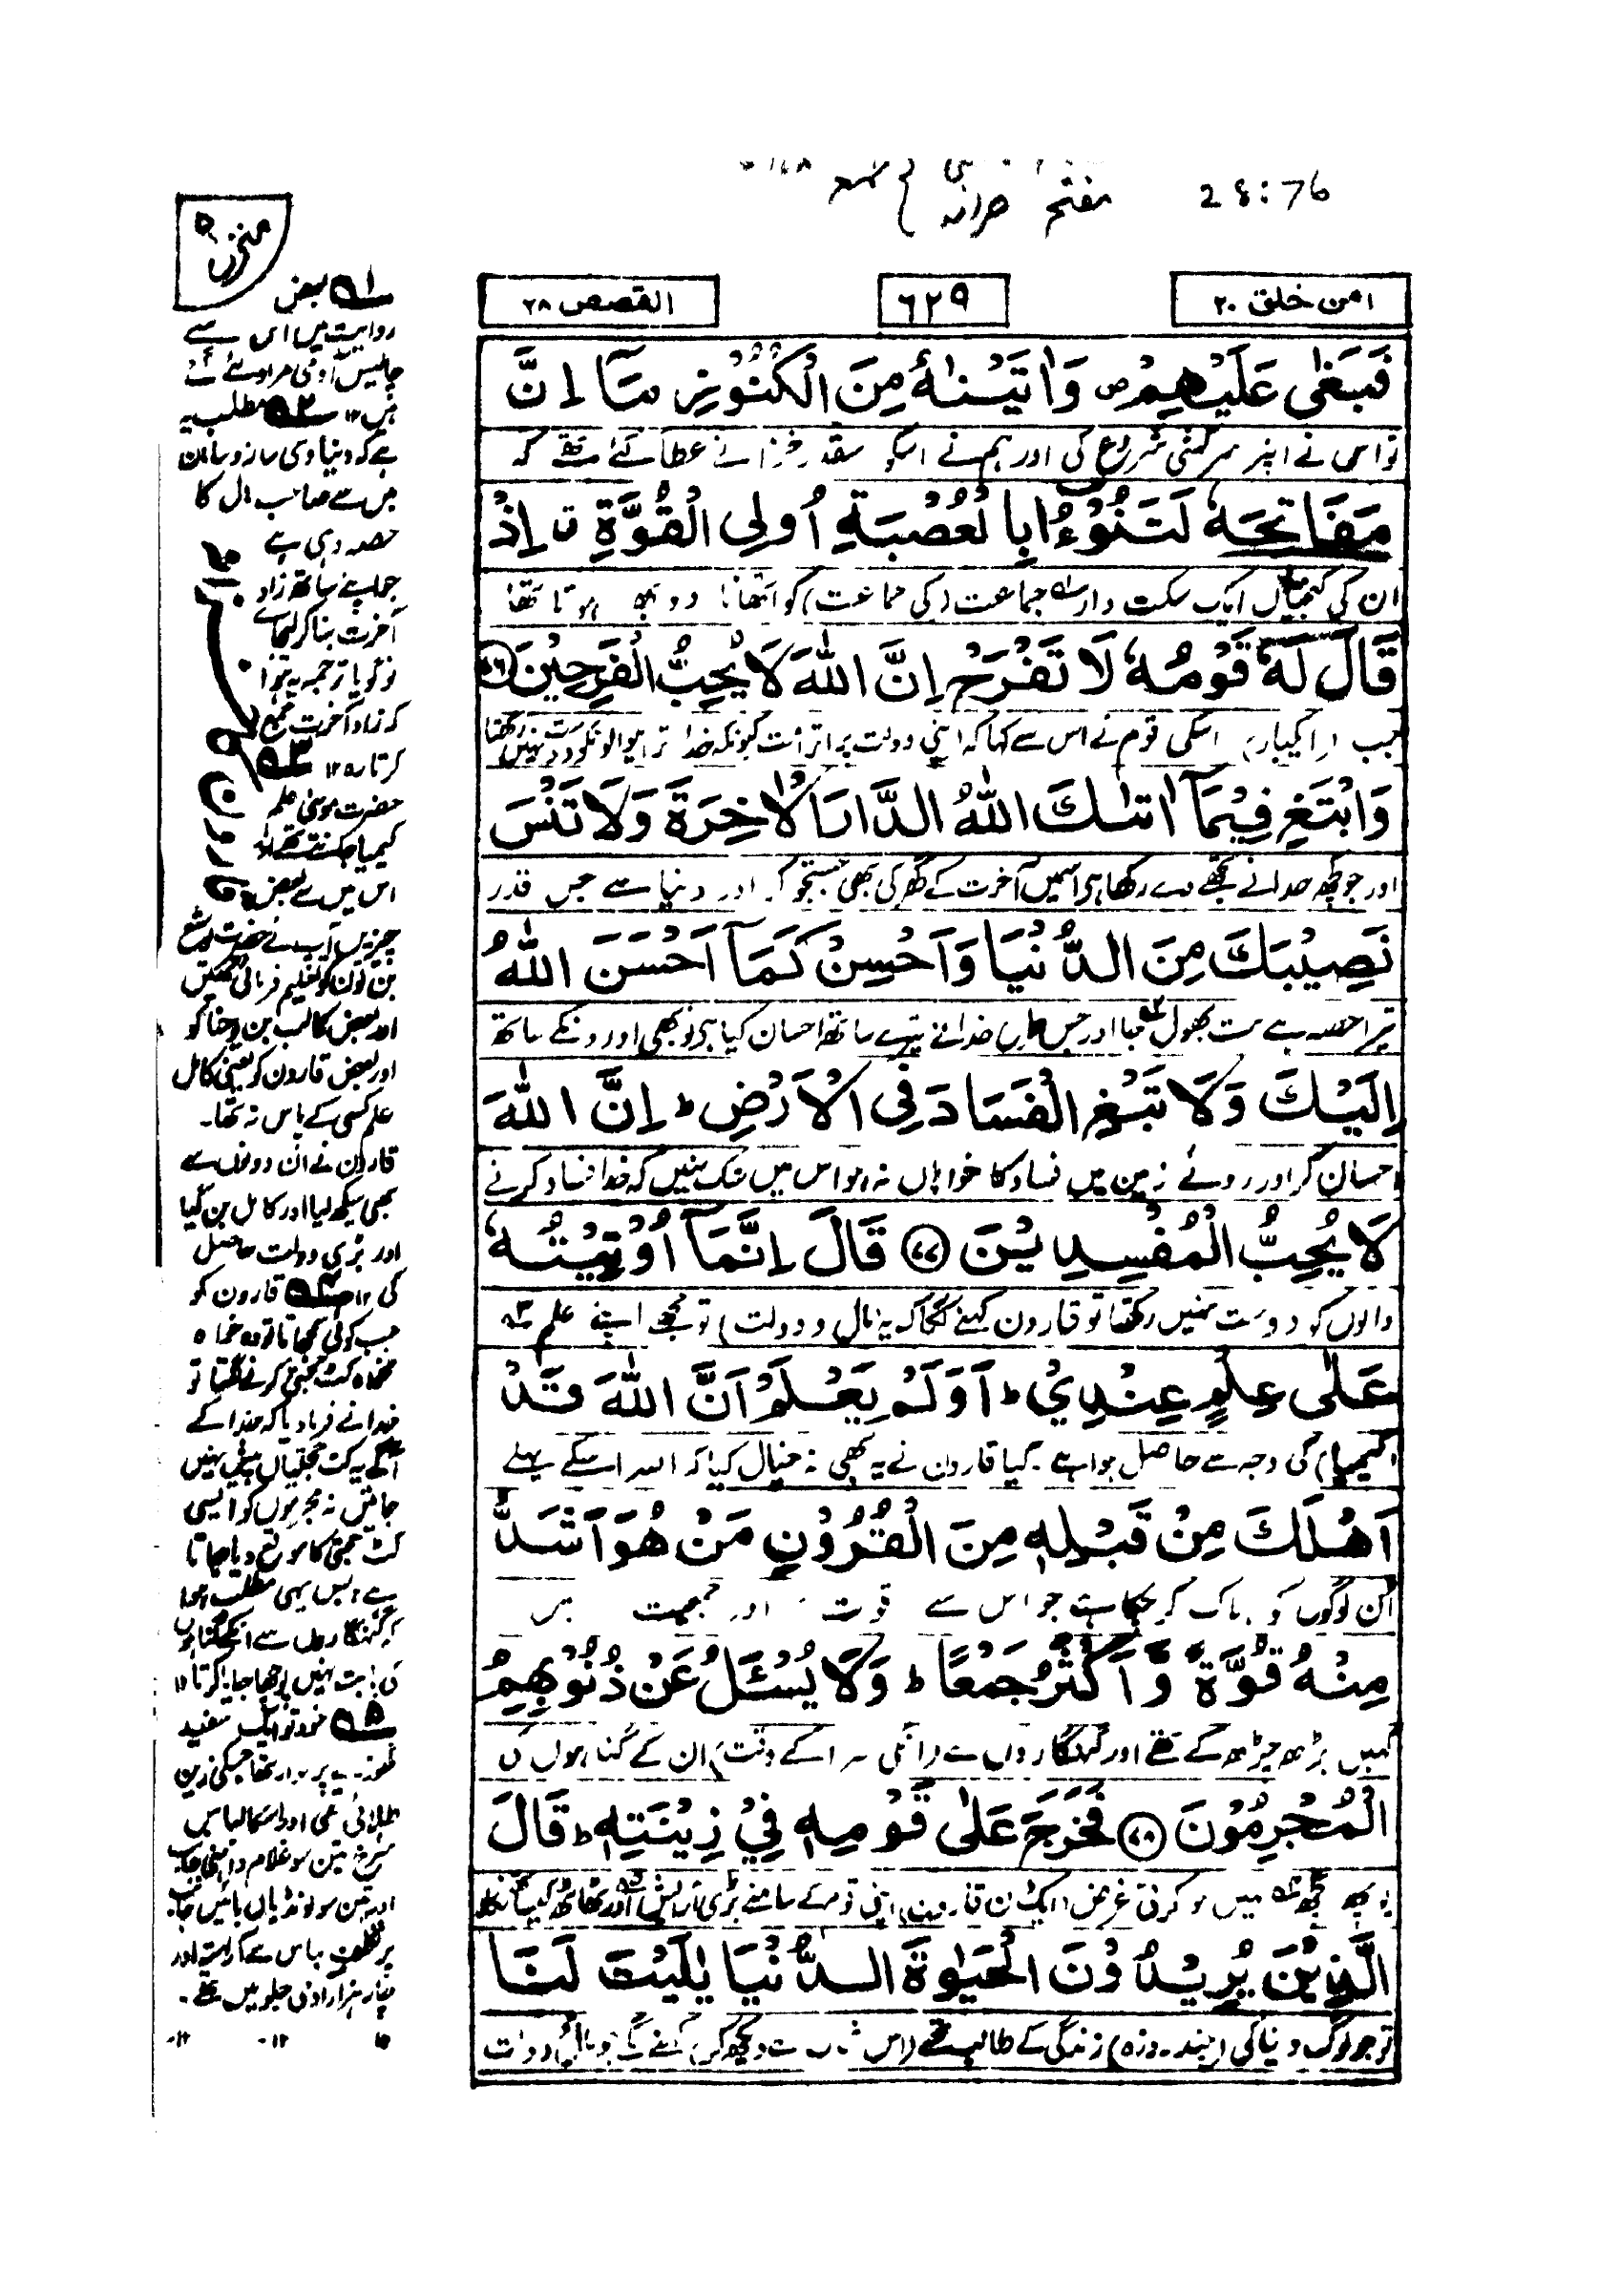 28:76
امن خلق ۲۰
٦٢٩
القصص ۲۸
فَبَغٰى عَلَيْهِمْ ص وَاٰتَيْنٰهُ مِنَ الْكُنُوْزِ مَآ اِنَّ
تو اس نے اپنر سرکشی شروع کی اور ہم نے اسکو سقدر خزانے عطا کئے تھے کہ
مَفَاتِحَهٗ لَتَنُوْٓءُ ابِالْعُصْبَةِ اُولِى الْقُوَّةِ ق اِذْ
ان کی کنجیاں ایک سکت دار جماعت (کی جماعت) کو اٹھانا دو بھر ہوتا تھا
قَالَ لَهٗ قَوْمُهٗ لَا تَفْرَحْ اِنَّ اللّٰهَ لَا يُحِبُّ الْفَرِحِيْنَ ۷۶
جب (ایکبار) اسکی قوم نے اس سے کہا کہ اپنی دولت پر اترا مت کیونکہ خدا ترانیوالونکو دوست نہیں رکھتا
وَابْتَغِ فِيْمَآ اٰتٰىكَ اللّٰهُ الدَّارَ الْاٰخِرَةَ وَلَا تَنْسَ
اور جو کچھ خدا نے تجھے دے رکھا ہی اسمیں آخرت کے گھر کی بھی جستجو کر اور دنیا سے جس قدر
نَصِيْبَكَ مِنَ الدُّنْيَا وَاَحْسِنْ كَمَآ اَحْسَنَ اللّٰهُ
تیرا حصہ ہے مت بھول جا اور جس طرح خدا نے تیرے ساتھ احسان کیا ہی تو بھی اورونکے ساتھ
اِلَيْكَ وَلَا تَبْغِ الْفَسَادَ فِى الْاَرْضِ ط اِنَّ اللّٰهَ
احسان کر اور روئے زمین میں فساد کا خواہاں نہ ہو اس میں شک نہیں کہ خدا فساد کرنے
لَا يُحِبُّ الْمُفْسِدِيْنَ ۷۷ قَالَ اِنَّمَآ اُوْتِيْتُهٗ
والوں کو دوست نہیں رکھتا تو قارون کہنے لگا کہ یہ (مال و دولت) تو مجھے اپنے علم
عَلٰى عِلْمٍ عِنْدِيْ ط اَوَلَمْ يَعْلَمْ اَنَّ اللّٰهَ قَدْ
(کیمیا) کی وجہ سے حاصل ہوا ہے ۔ کیا قارون نے یہ بھی نہ خیال کیا کہ اللہ اسکے پہلے
اَهْلَكَ مِنْ قَبْلِهٖ مِنَ الْقُرُوْنِ مَنْ هُوَ اَشَدُّ
اُن لوگوں کو ہلاک کر چکا ہے جو اس سے قوت اور جمعیت میں
مِنْهُ قُوَّةً وَّاَكْثَرُ جَمْعًا ط وَلَا يُسْئَلُ عَنْ ذُنُوْبِهِمُ
کہیں بڑھ چڑھ کے تھے اور گنہگاروں سے (انکی سزا کے وقت) ان کے گناہوں کی
الْمُجْرِمُوْنَ ۷۸ فَخَرَجَ عَلٰى قَوْمِهٖ فِيْ زِيْنَتِهٖ ط قَالَ
پوچھ گچھ نہیں ہو کرتی غرض (ایک دن قارون) اپنی قوم کے سامنے بڑی آرایش اور ٹھاٹھ کیساتھ نکلا
الَّذِيْنَ يُرِيْدُوْنَ الْحَيٰوةَ الدُّنْيَا يٰلَيْتَ لَنَا
تو جو لوگ دنیا کی (چند روزہ) زندگی کے طالب تھے (اس شان سے دیکھ کر) کہنے لگے جو مال و دولت
منزل ۵
۱ بعض
روایت میں اس سے
چالیس آدمی مراد لئے گئے
ہیں ۱۲ ۲ مطلب یہ
ہے کہ دنیاوی ساز و سامان
میں سے صاحب مال کا
حصہ وہی ہے
جو اپنے ساتھ زاد
آخرت بنا کر لیجائے
تو گویا ترجمہ یہ ہوا
کہ زاد آخرت جمع
کرتا رہ ۱۲ ۳
حضرت موسیٰ علم
کیمیا جانتے تھے اور
اس میں سے بعض
چیزیں آپ نے حضرت یوشع
بن نون کو تعلیم فرمائی تھیں
اور بعض کالب بن یوحنا کو
اور بعض قارون کو یعنی کامل
علم کسی کے پاس نہ تھا۔
قارون نے ان دونوں سے
بھی سیکھ لیا اور کامل بن گیا
اور بڑی دولت حاصل
کی ۱۲ ۴ قارون کو
جب کوئی سمجھاتا تو وہ خواہ
مخواہ کٹ حجتی کرنے لگتا تو
خدا نے فرمادیا کہ خدا کے
آگے یہ کٹ حجتیاں چلنے نہیں
جاتیں نہ مجرموں کو ایسی
کٹ حجتی کا موقع دیا جاتا
ہے بس یہی مطلب ہوا
کہ گنہگاروں سے انکے گناہوں
کی بابت نہیں پوچھا جایا کرتا ۱۲
۵ خود تو ایک سفید
خچر پر سوار تھا جسکی زین
طلائی تھی اور اسکا لباس
سرخ تین سو غلام داہنی جانب
اور تین سو لونڈیاں بائیں جانب
پر تکلف لباس سے آراستہ اور
چار ہزار آدمی جلو میں تھے ۔
۱۲ ۱۲- ۱۲-